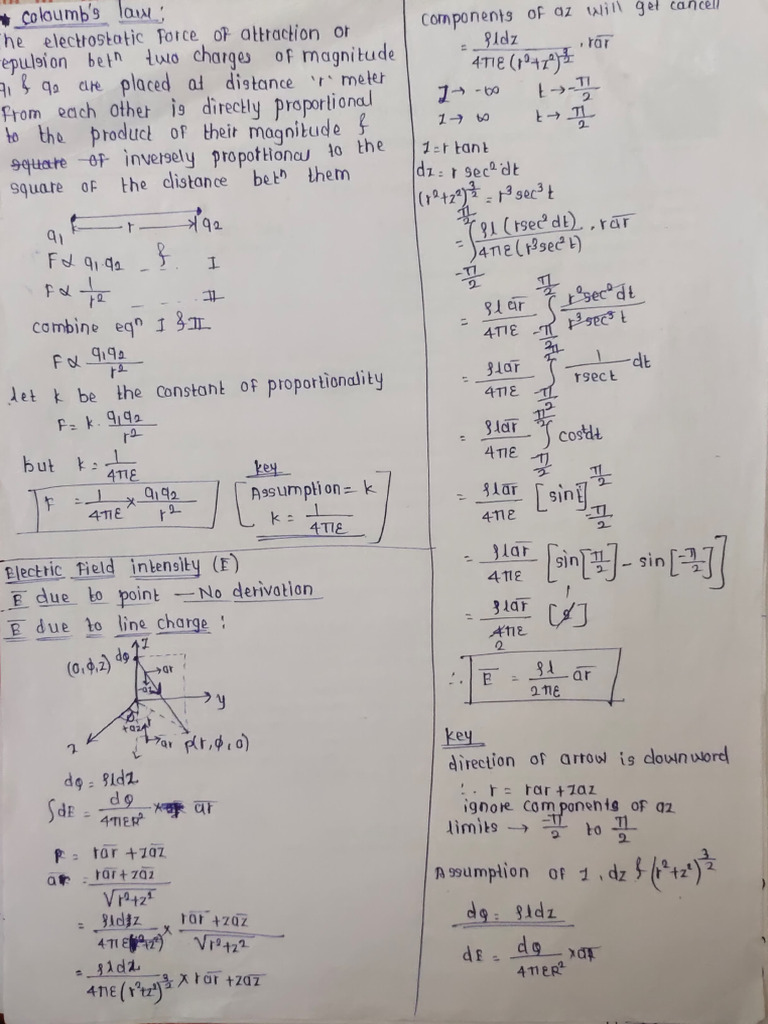 * Coloumb's law:
The electrostatic force of attraction or
repulsion betⁿ two charges of magnitude
q₁ & q₂ are placed at distance 'r' meter
From each other is directly proportional
to the product of their magnitude &
square of inversely propotional to the
square of the distance betⁿ them
r
q₁ q₂
F ∝ q₁q₂ _ &_. I
F ∝ 1/r² _ ... II
combine eqⁿ I & II
F ∝ q₁q₂/r²
let k be the constant of proportionality
F = k. q₁q₂/r²
but k = 1/4πε
F = 1/4πε × q₁q₂/r²
key
Assumption = k
k = 1/4πε
Electric Field intensity (E)
E̅ due to point — No derivation
E̅ due to line charge:
z
dφ
(0,φ,z)
ar
-az
y
φ
+az
r
ar
P(r,φ,0)
x
dφ = ρldz
∫dE = dφ/4πεR² × a̅r̅
R = ra̅r̅ + za̅z̅
a̅r̅ = ra̅r̅ + za̅z̅/√r²+z²
= ρldz/4πε(r²+z²) × ra̅r̅ + za̅z̅/√r²+z²
= ρldz/4πε(r²+z²)^3/2 × ra̅r̅ + za̅z̅
components of az will get cancell
= ρldz/4πε(r²+z²)^3/2 . ra̅r̅
z → -∞ t → -π/2
z → ∞ t → π/2
z = r tant
dz = r sec² dt
(r²+z²)^3/2 = r³sec³t
= ∫_{-π/2}^{π/2} ρl(rsec²dt)/4πε(r³sec³t) . ra̅r̅
= ρla̅r̅/4πε ∫_{-π/2}^{π/2} r²sec²dt/r³sec³t
= ρla̅r̅/4πε ∫_{-π/2}^{π/2} 1/rsect dt
= ρla̅r̅/4πε ∫_{-π/2}^{π/2} costdt
= ρla̅r̅/4πε [sint]_{-π/2}^{π/2}
= ρla̅r̅/4πε [sin[π/2] - sin[-π/2]]
= ρla̅r̅/4πε [2]
2 1
∴ E̅ = ρl/2πε a̅r̅
key
direction of arrow is downword
∴ r = rar + zaz
ignore components of az
limits → -π/2 to π/2
Assumption of z, dz & (r²+z²)^3/2
dφ = ρldz
dE = dφ/4πεR² × a̅r̅